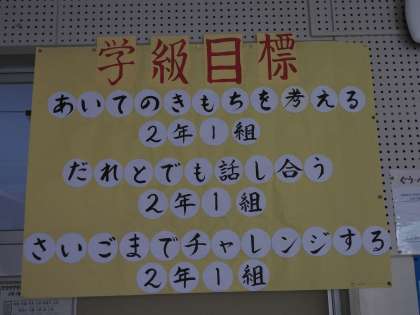 学級目標
あいてのきもちを考える
2年1組
だれとでも話し合う
2年1組
さいごまでチャレンジする
2年1組